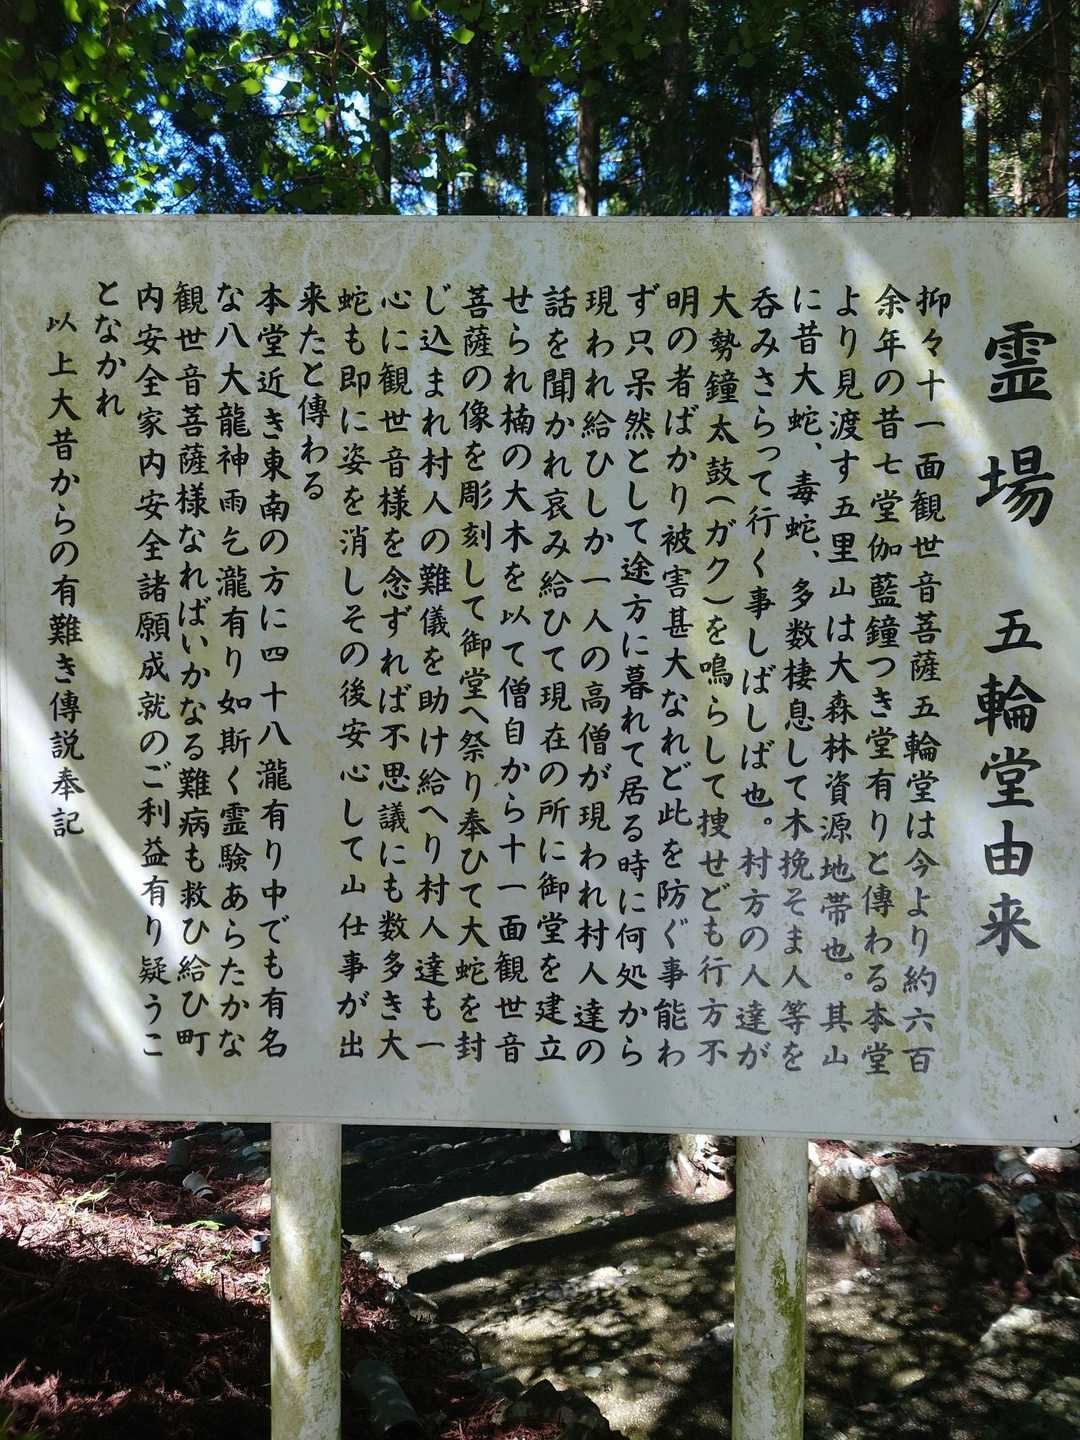 霊場 五輪堂由来
抑々十一面観世音菩薩五輪堂は今より約六百
余年の昔七堂伽藍鐘つき堂有りと傳わる本堂
より見渡す五里山は大森林資源地帯也。其山
に昔大蛇、毒蛇、多数棲息して木挽そま人等を
呑みさらって行く事しばしば也。村方の人達が
大勢鐘太鼓(ガク)を鳴らして捜せども行方不
明の者ばかり被害甚大なれど此を防ぐ事能わ
ず只呆然として途方に暮れて居る時に何処から
現われ給ひしか一人の高僧が現われ村人達の
話を聞かれ哀み給ひて現在の所に御堂を建立
せられ楠の大木を以て僧自から十一面観世音
菩薩の像を彫刻して御堂へ祭り奉ひて大蛇を封
じ込まれ村人の難儀を助け給へり村人達も一
心に観世音様を念ずれば不思議にも数多き大
蛇も即に姿を消しその後安心して山仕事が出
来たと傳わる
本堂近き東南の方に四十八瀧有り中でも有名
な八大龍神雨乞瀧有り如斯く霊験あらたかな
観世音菩薩様なればいかなる難病も救ひ給ひ町
内安全家内安全諸願成就のご利益有り疑うこ
となかれ
以上大昔からの有難き傳説奉記